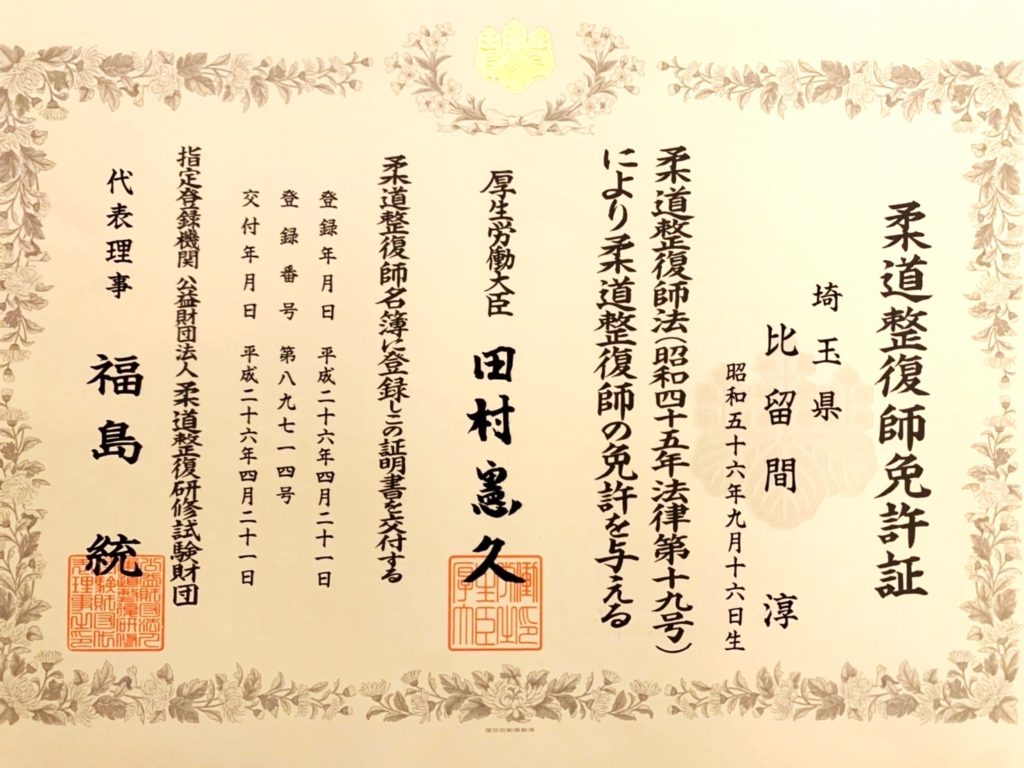 柔道整復師免許証
埼玉県
比留間 淳
昭和五十六年九月十六日生
柔道整復師法(昭和四十五年法律第十九号)
により柔道整復師の免許を与える
厚生労働大臣 田村憲久
柔道整復師名簿に登録しこの証明書を交付する
登録年月日 平成二十六年四月二十一日
登録番号 第八九七一四号
交付年月日 平成二十六年四月二十一日
指定登録機関 公益財団法人柔道整復研修試験財団
代表理事 福島 統